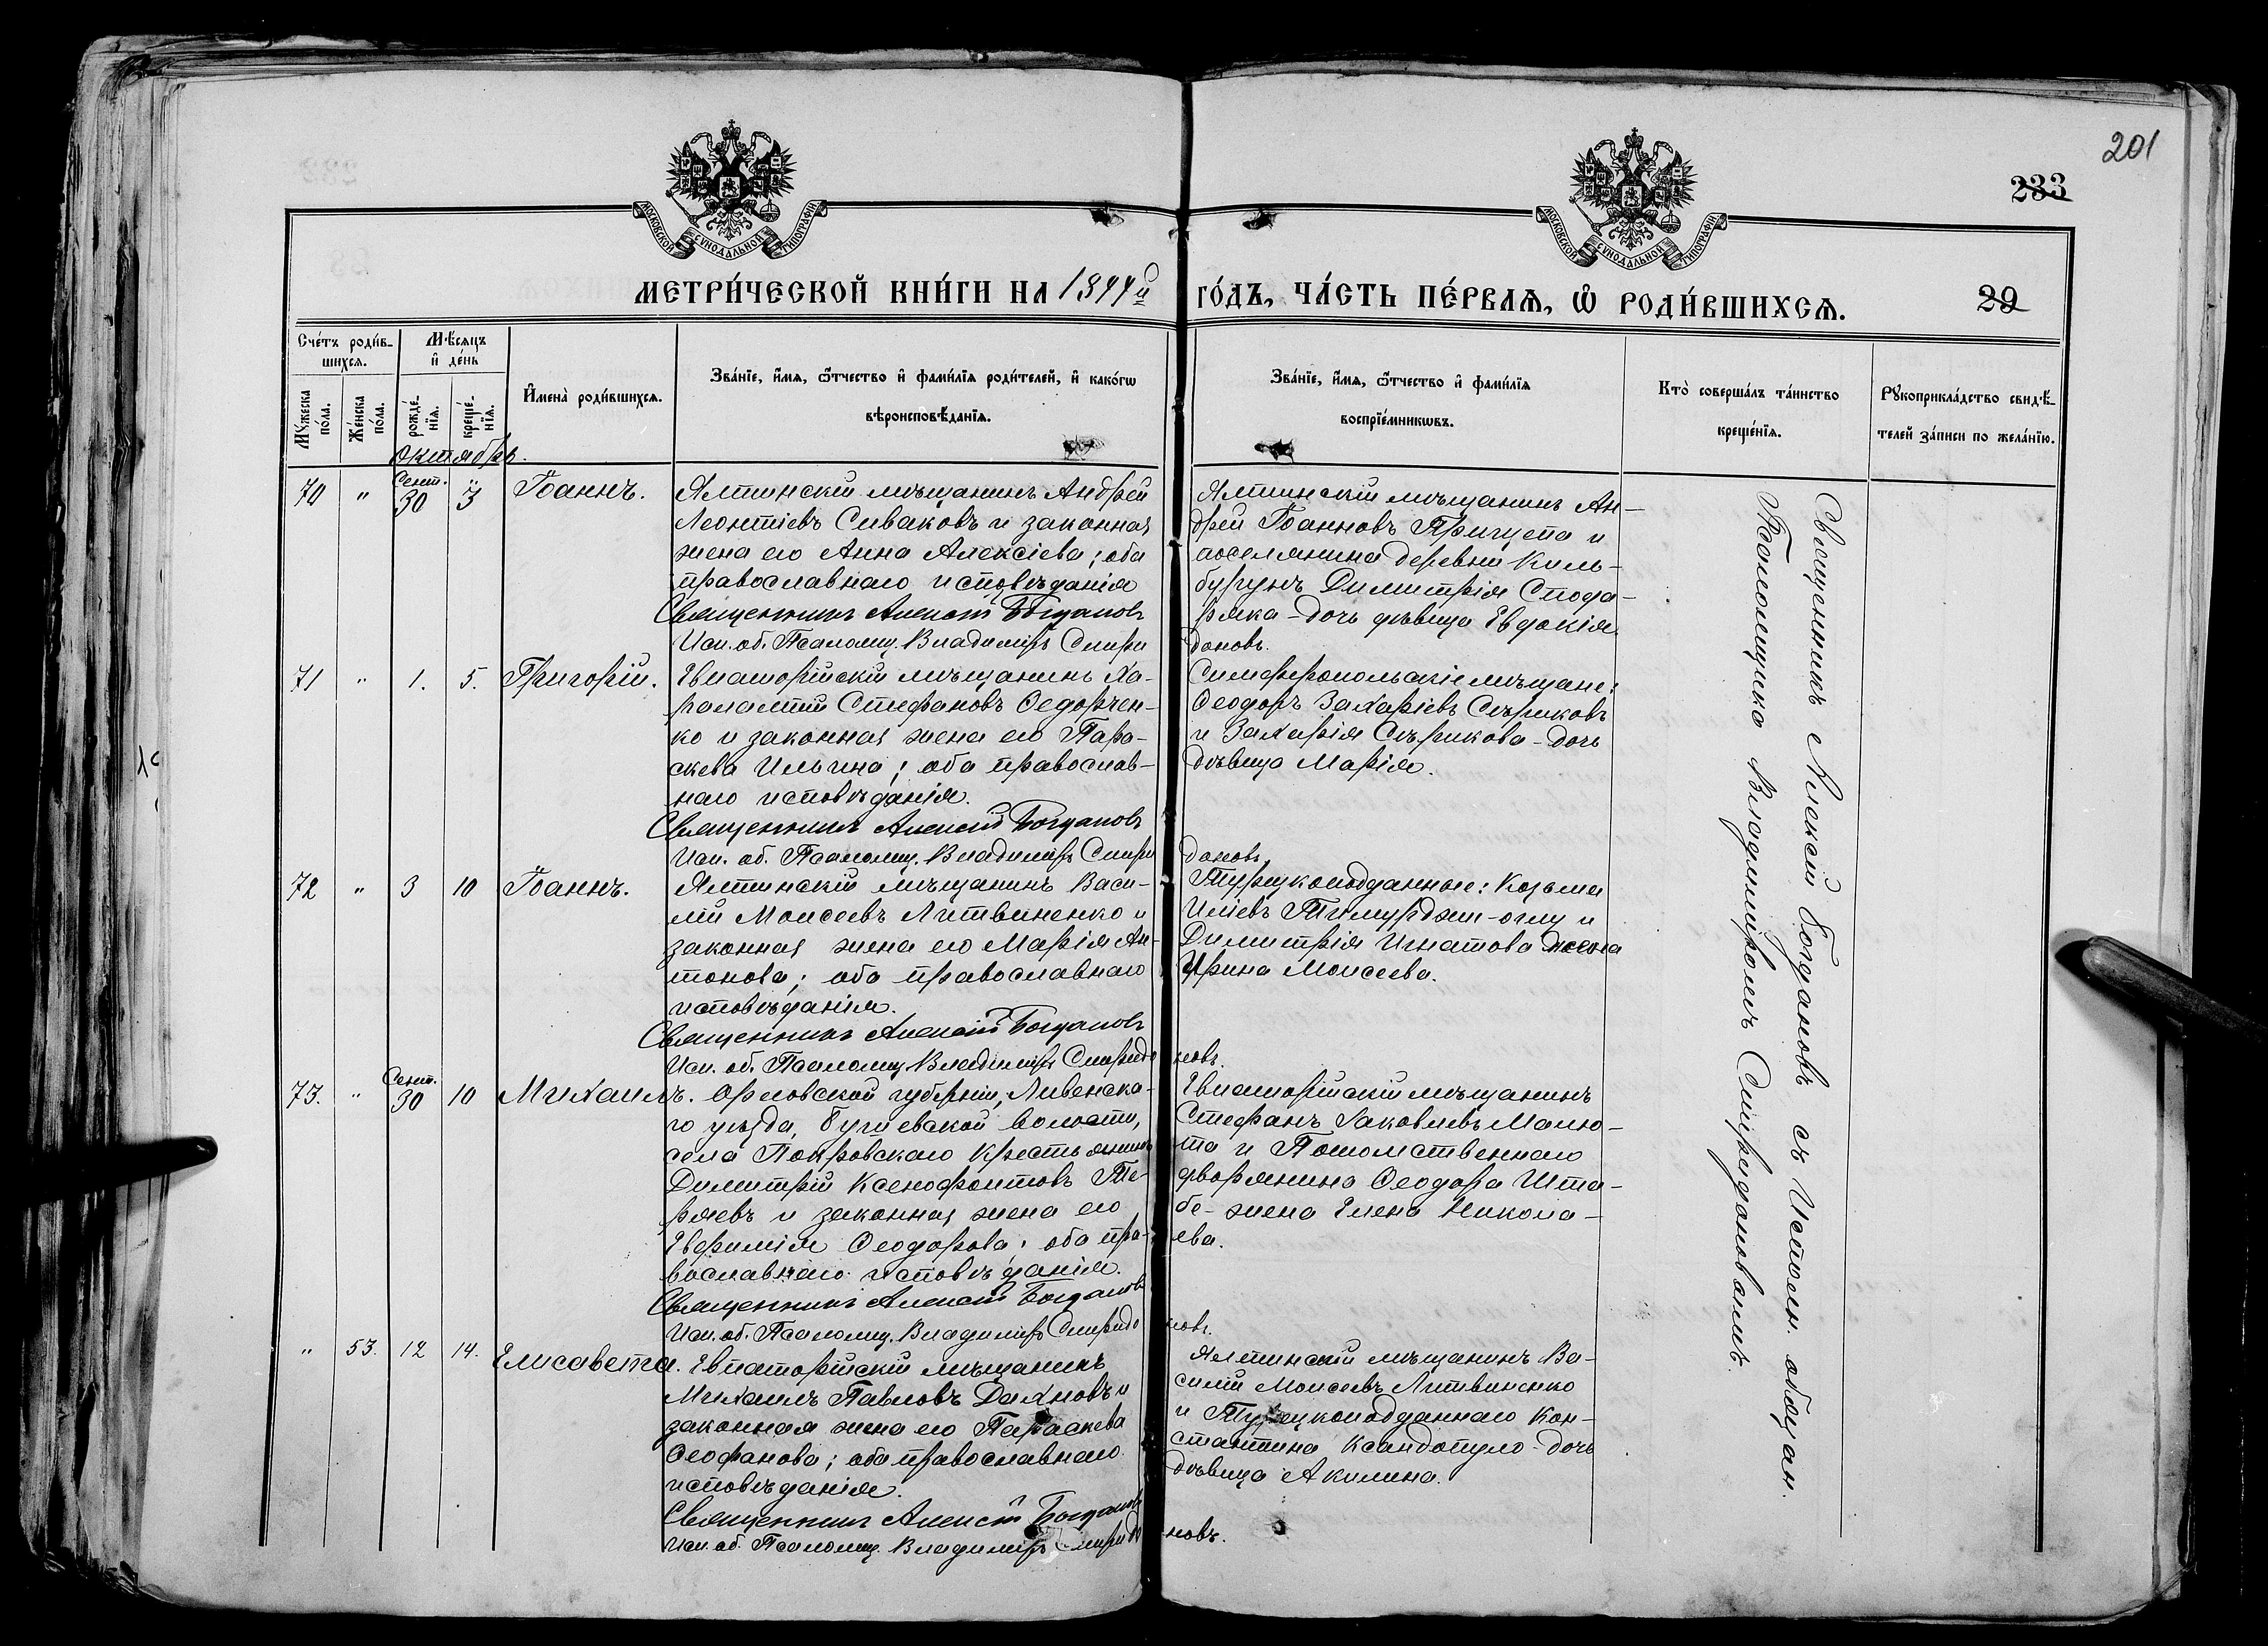 201
233
МОСКОВСКОЙ СѴНОДАЛЬНОЙ ТИПОГРАФІИ
МОСКОВСКОЙ СѴНОДАЛЬНОЙ ТИПОГРАФІИ
МЕТРИ́ЧЕСКОЙ КНИ́ГИ НА
ГО́ДЪ, ЧА́СТЬ ПЕ́РВАѦ, Ѡ҆ РОДИ́ВШИХСѦ.
29
Сче́тъ роди́в-
шихсѧ.
Мꙋ́жеска
по́ла.
Же́нска
по́ла.
Мѣ́сѧцъ
и҆ де́нь
рожде́-
нїѧ.
креще́-
нїѧ.
И҆мена̀ роди́вшихсѧ.
Зва́нїе, и҆́мѧ, ѻ҆́тчество и҆ фами́лїѧ роди́телей, и҆ како́гѡ
вѣроисповѣ́данїѧ.
Зва́нїе, и҆́мѧ, ѻ҆́тчество и҆ фами́лїѧ
воспрїе́мникѡвъ.
Кто̀ соверша́лъ та́инство
креще́нїѧ.
Рꙋкоприкла́дство свидѣ́-
телей за́писи по жела́нїю.
Октябрь.
70 " Сент. 30 3 Іоаннъ.
Ялтинскій мѣщанинъ Андрей
Леонтіевъ Сиваковъ и законная
жена его Анна Алексіева; оба
православнаго исповѣданія
Священникъ Алексій Богдановъ
Исп. об. Псаломщ. Владиміръ Спири
доновъ.
Ялтинскій мѣщанинъ Ан-
дрей Іоанновъ Пригупа и
поселянина деревни Киль-
бурунъ Димитрія Спода-
ряка - дочь дѣвица Евдокія.
71 " 1. 5. Григорій.
Евпаторійскій мѣщанинъ Ха-
ралампій Стефановъ Ѳедорчен-
ко и законная жена его Пара-
скева Ильина; оба православ-
наго исповѣданія.
Священникъ Алексій Богдановъ
Исп. об. Псаломщ. Владиміръ Спири
доновъ.
Симферопольскіе мѣщане:
Ѳеодоръ Захаріевъ Сѣриковъ
и Захарія Сѣрикова - дочь
дѣвица Марія.
72 " 3 10 Іоаннъ.
Ялтинскій мѣщанинъ Васи-
лій Моисеевъ Литвиненко и
законная жена его Марія Ан-
тонова; оба православнаго
исповѣданія.
Священникъ Алексій Богдановъ
Исп. об. Псаломщ. Владиміръ Спиридо
новъ.
Турецкоподданные: Козьма
Иліевъ Тимурджи-оглу и
Димитрія Игнатова жена
Ирина Моисеева.
73. " Сент. 30 10 Михаилъ.
Орловской губерніи, Ливенска-
го уѣзда, волости,
села Покровскаго крестьянинъ
Димитрій Ксенофонтовъ Те-
ряевъ и законная жена его
Евфимія Ѳеодорова; оба пра-
вославнаго исповѣданія.
Священникъ Алексій Богдановъ
Исп. об. Псаломщ. Владиміръ Спиридо
новъ.
Евпаторійскій мѣщанинъ
Стефанъ Іаковлевъ Малю-
та и Потомственнаго
дворянина Ѳеодора Шта-
бе - жена Елена Никола-
ева.
" 53. 12 14. Елисавета.
Евпаторійскій мѣщанинъ
Михаилъ Павловъ Дахновъ и
законная жена его Параскева
Ѳеофанова; оба православнаго
исповѣданія.
Священникъ Алексій Богдановъ
Исп. об. Псаломщ. Владиміръ Спиридо
новъ.
Ялтинскій мѣщанинъ Ва-
силій Моисеевъ Литвиненко
и Турецкоподданнаго Кон-
стантина Ксандопуло - дочь
дѣвица Акилина.
Священникъ Алексій Богдановъ съ Исполн. обязан.
Псаломщика Владиміромъ Спиридоновымъ.